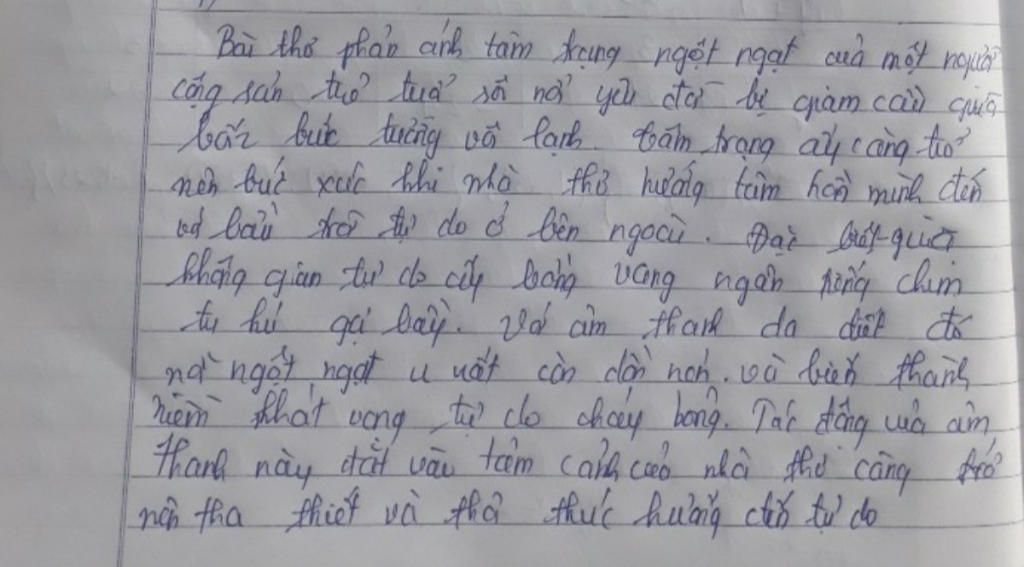 Bài thơ phản ánh tâm trạng ngột ngạt của một người
cộng sản trẻ tuổi sôi nổi yêu đời bị giam cầm giữa
bốn bức tường vôi lạnh. tâm trạng ấy càng trở
nên bức xúc khi nhà thơ hướng tâm hồn mình đến
với bầu trời tự do ở bên ngoài. Đặc biệt
không gian tự do ấy vang ngân tiếng chim
tu hú gọi bầy. Với âm thanh da diết đó
nó ngột ngạt u uất còn dồn nén. và biến thành
niềm khát vọng tự do cháy bỏng. Tác động của âm
thanh này đặt vào tâm cảnh nhà thơ càng trở
nên tha thiết và thổn thức hướng đến tự do